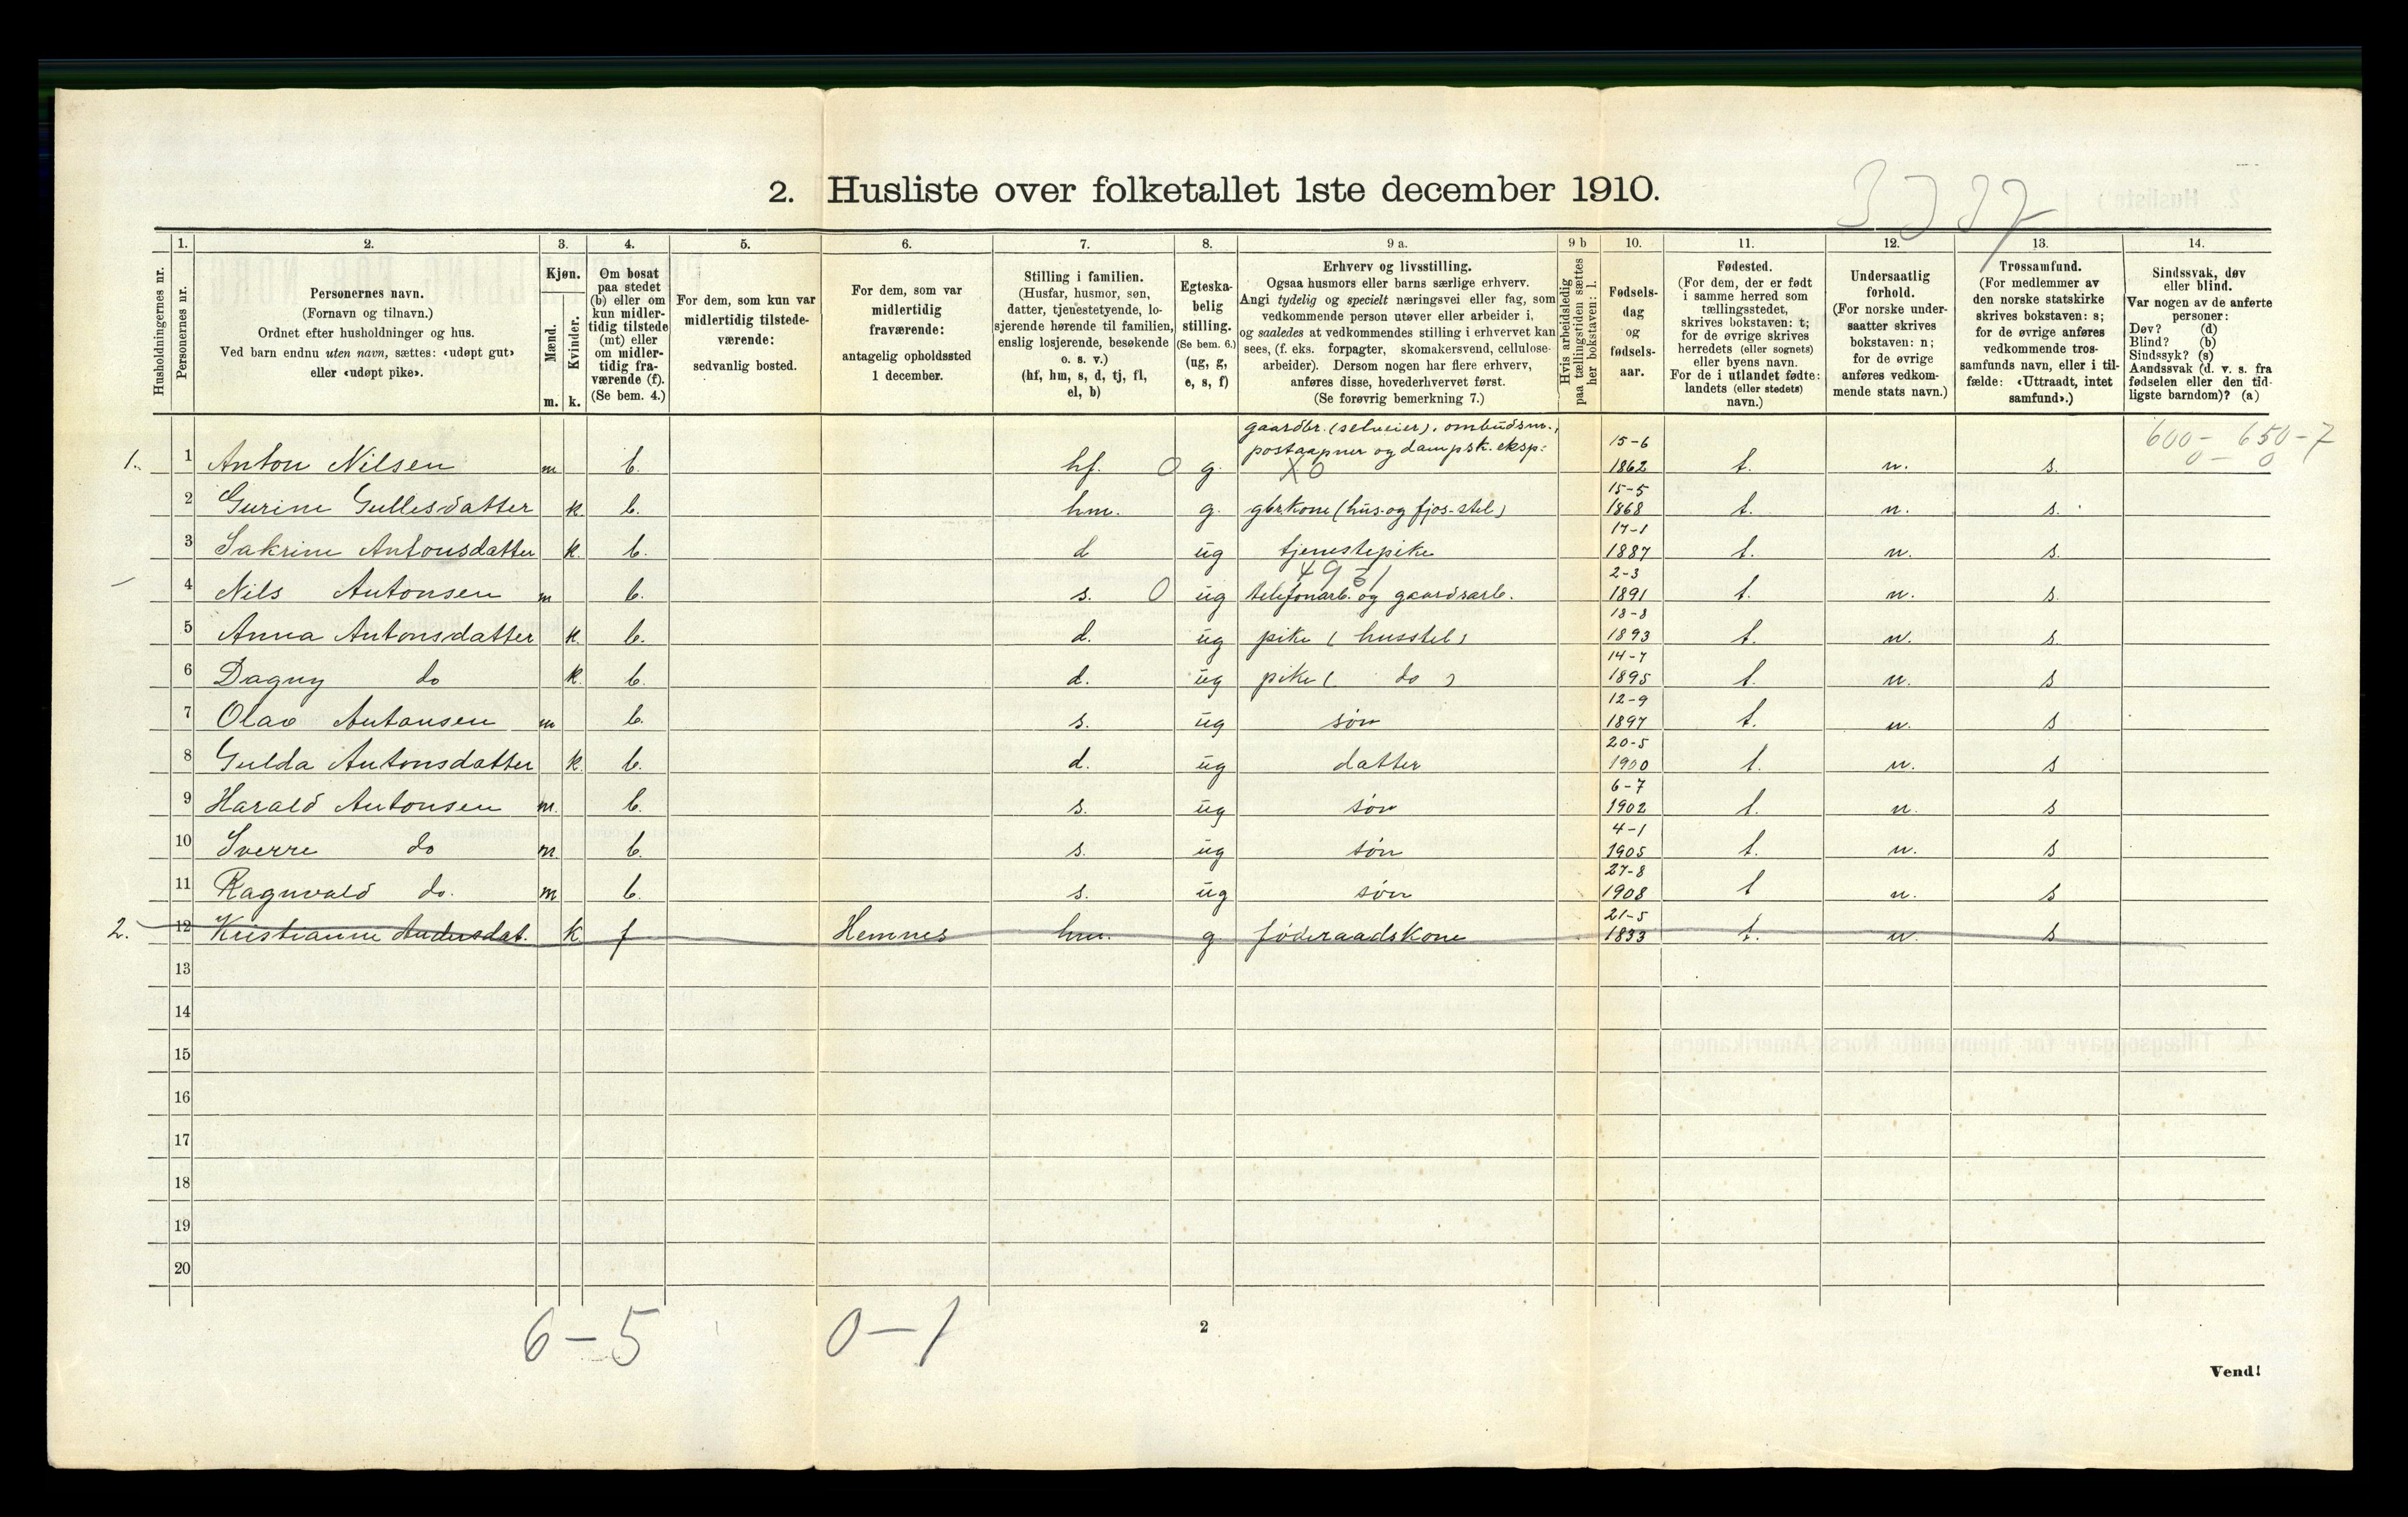 2. Husliste over folketallet 1ste december 1910.
Husholdningernes nr.
1. Personernes nr.
2. Personernes navn.
(Fornavn og tilnavn.)
Ordnet efter husholdninger og hus.
Ved barn endnu uten navn, sættes: «udøpt gut»
eller «udøpt pike».
3. Kjøn.
Mænd. m.
Kvinder. k.
4. Om bosat
paa stedet
(b) eller om
kun midler-
tidig tilstede
(mt) eller
om midler-
tidig fra-
værende (f).
(Se bem. 4.)
5. For dem, som kun var
midlertidig tilstede-
værende:
sedvanlig bosted.
6. For dem, som var
midlertidig
fraværende:
antagelig opholdssted
1 december.
7. Stilling i familien.
(Husfar, husmor, søn,
datter, tjenestetyende, lo-
sjerende hørende til familien,
enslig losjerende, besøkende
o. s. v.)
(hf, hm, s, d, tj, fl,
el, b)
8. Egteska-
belig
stilling.
(Se bem. 6.)
(ug, g,
e, s, f)
9 a. Erhverv og livsstilling.
Ogsaa husmors eller barns særlige erhverv.
Angi tydelig og specielt næringsvei eller fag, som
vedkommende person utøver eller arbeider i,
og saaledes at vedkommendes stilling i erhvervet kan
sees, (f. eks. forpagter, skomakersvend, cellulose-
arbeider). Dersom nogen har flere erhverv,
anføres disse, hovederhvervet først.
(Se forøvrig bemerkning 7.)
9 b Hvis arbeidsledig
paa tællingstiden sættes
her bokstaven: l.
10. Fødsels-
dag
og
fødsels-
aar.
11. Fødested.
(For dem, der er født
i samme herred som
tællingsstedet,
skrives bokstaven: t;
for de øvrige skrives
herredets (eller sognets)
eller byens navn.
For de i utlandet fødte:
landets (eller stedets)
navn.)
12. Undersaatlig
forhold.
(For norske under-
saatter skrives
bokstaven: n;
for de øvrige
anføres vedkom-
mende stats navn.)
13. Trossamfund.
(For medlemmer av
den norske statskirke
skrives bokstaven: s;
for de øvrige anføres
vedkommende tros-
samfunds navn, eller i til-
fælde: «Uttraadt, intet
samfund».)
14. Sindssvak, døv
eller blind.
Var nogen av de anførte
personer:
Døv? (d)
Blind? (b)
Sindssyk? (s)
Aandssvak (d. v. s. fra
fødselen eller den tid-
ligste barndom)? (a)
gaardbr. (selveier), ombudsm.,
postaapner og dampsk. eksp:
1. 1 Anton Nilsen m b. hf. 0 g. X0 15-6 1862 t. n. s. 600- 650-7
0 - 0
2 Gurine Gullesdatter k b. hm. g. gbr.kone (hus-og fjos-stel) 15-5 1868 t. n. s.
3 Sakrine Antonsdatter k. b. d ug tjenestepike 17-1 1887 t. n. s.
4 Nils Antonsen m b. s. 0 ug telefonarb. og gaardsarb. 2-3 1891 t. n. s
5 Anna Antonsdatter k. b. d. ug pike (husstel) 13-8 1893 t. n. s
6 Dagny do k. b. d. ug pike ( do ) 14-7 1895 t. n. s
7 Olav Antonsen m b. s. ug søn 12-9 1897 t. n. s
8 Gulda Antonsdatter k. b. d. ug datter 20-5 1900 t. n. s
9 Harald Antonsen m. b. s. ug søn 6-7 1902 t. n. s
10 Sverre do m. b. s. ug søn 4-1 1905 t. n. s
11 Ragnvald do. m b. s. ug søn 27-8 1908 t n. s
2. 12 Kristianne Andersdat. k f Hemnes hm. g. føderaadskone 21-5 1833 t. n. s
13
14
15
16
17
18
19
20
6-5 0-1
2
Vend!